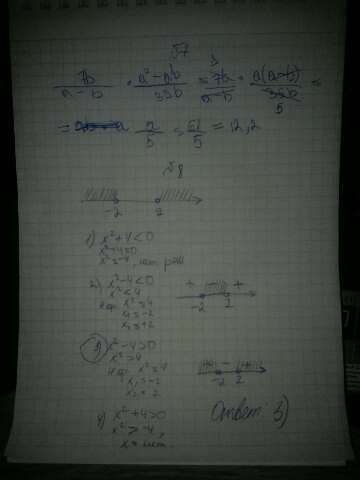 №7
7b / a-b · a²-ab / 35b = 7b / a-b · a(a-b) / 35b =
5
= a / 5 = 61 / 5 = 12,2
№8
-2 2
1) x²+4<0
x²+4=0
x²=-4, нет реш
2) x²-4<0
x²<4
x²=4
x₁=-2
x₂=+2
+ - +
-2 2
3) x²-4>0
x²>4
x²=4
x₁=-2
x₂=2
+ - +
-2 2
4) x²+4>0
x²>-4,
Ответ: 3)